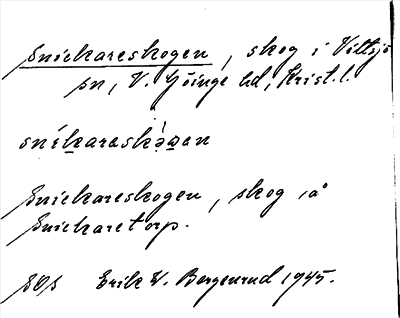 Snickareskogen, skog i Vittsjö
sn, V. Göinge hd, Krist. l.
snikareskɔ̀gen
Snickareskogen, skog å
Snickaretorp.
Erik W. Bergenrud 1945.